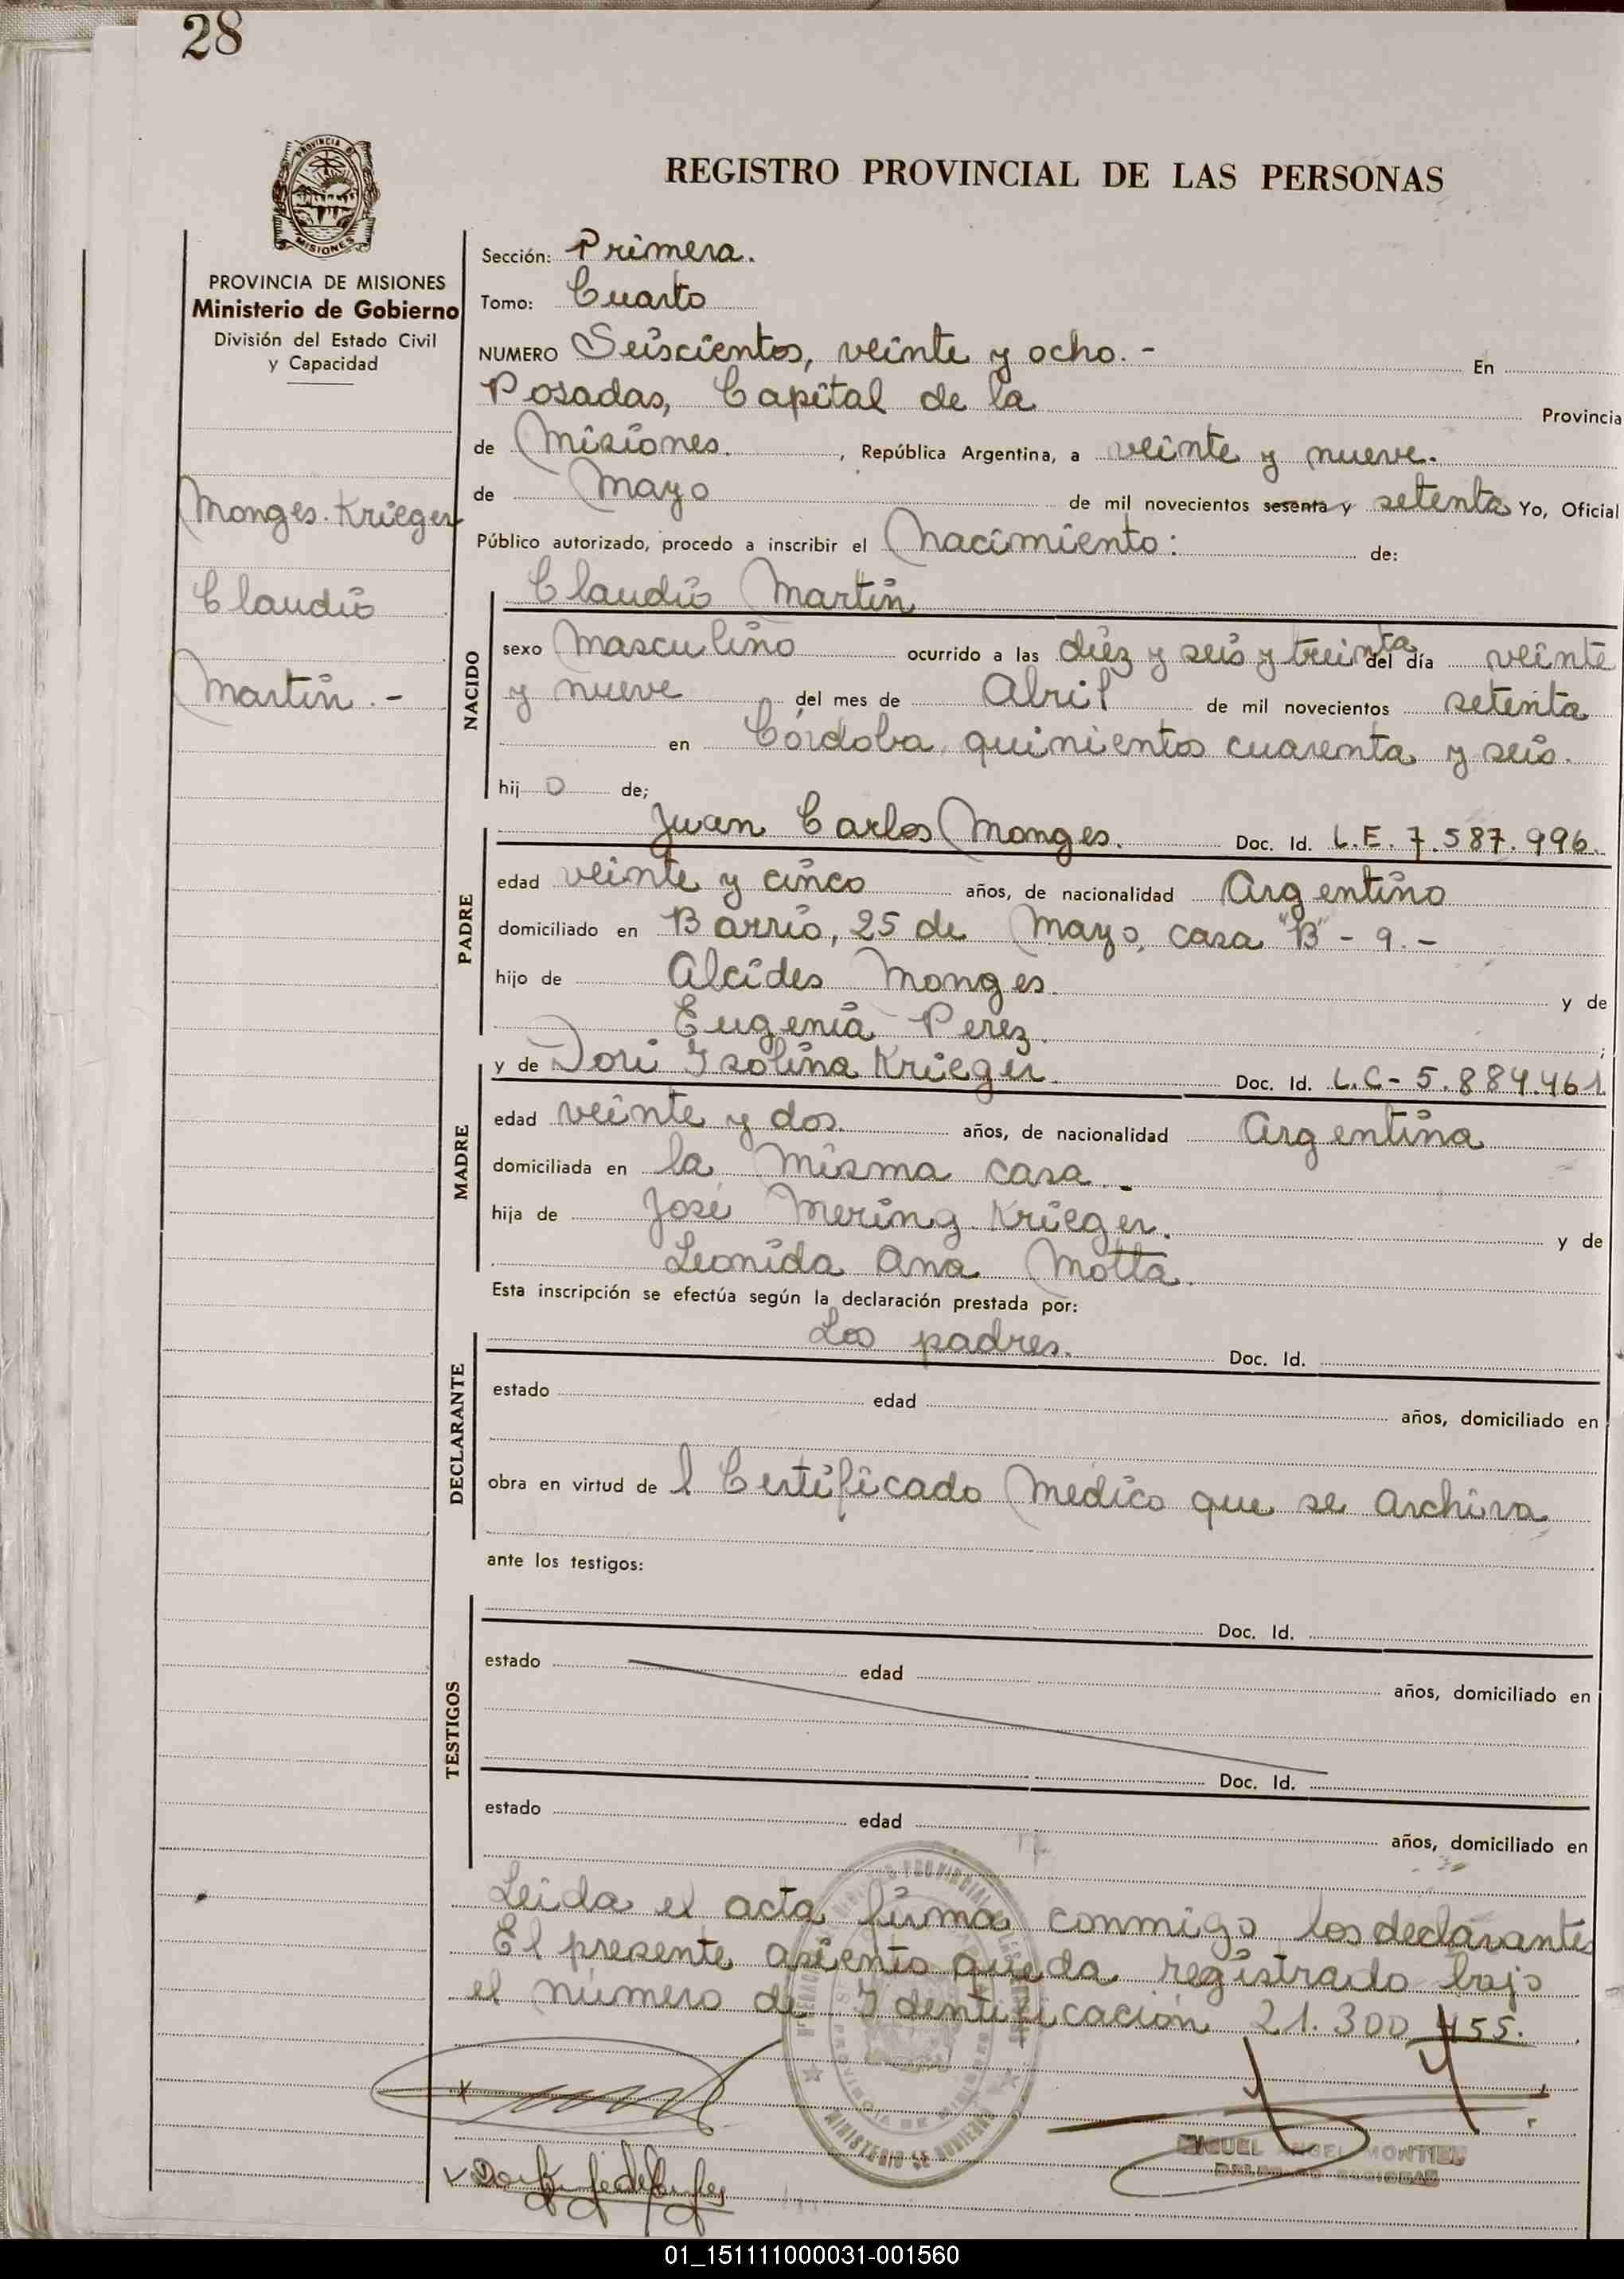 28
REGISTRO PROVINCIAL DE LAS PERSONAS
PROVINCIA DE MISIONES
Ministerio de Gobierno
División del Estado Civil
y Capacidad
Monges. Krieger
Claudio
Martin. -
Sección: Primera.
Tomo: Cuarto
NUMERO Seiscientos, veinte y ocho. - En
Posadas, Capital de la Provincia
de Misiones. , República Argentina, a veinte y nueve.
de Mayo de mil novecientos sesenta y setenta Yo, Oficial
Público autorizado, procedo a inscribir el Nacimiento: de:
NACIDO
Claudio Martin
sexo Masculino ocurrido a las diez y seis y treinta del día veinte
y nueve del mes de Abril de mil novecientos setenta
en Córdoba quinientos cuarenta y seis.
hij o de;
PADRE
Juan Carlos Monges. Doc. Id. L.E. 7.587.996.
edad veinte y cinco años, de nacionalidad Argentino
domiciliado en Barrio, 25 de Mayo, casa "B" - 9. -
hijo de Alcides Monges. y de
Eugenia Perez. ;
MADRE
y de Dori Isolina Krieger. Doc. Id. L.C- 5.884.461
edad veinte y dos. años, de nacionalidad Argentina
domiciliada en la misma casa. -
hija de José Mering Krieger. y de
Leonida Ana Motta.
Esta inscripción se efectúa según la declaración prestada por:
DECLARANTE
Los padres. Doc. Id.
estado edad años, domiciliado en
obra en virtud de l Certificado Medico que se archiva
ante los testigos:
TESTIGOS
Doc. Id.
estado edad años, domiciliado en
Doc. Id.
estado edad años, domiciliado en
Leida el acta, firma conmigo los declarantes
El presente asiento queda registrado bajo
el número de Identificación 21.300.455.
PROVINCIA DE MISIONES
MINISTERIO DE GOBIERNO
MIGUEL ANGEL MONTIEL
01_151111000031-001560